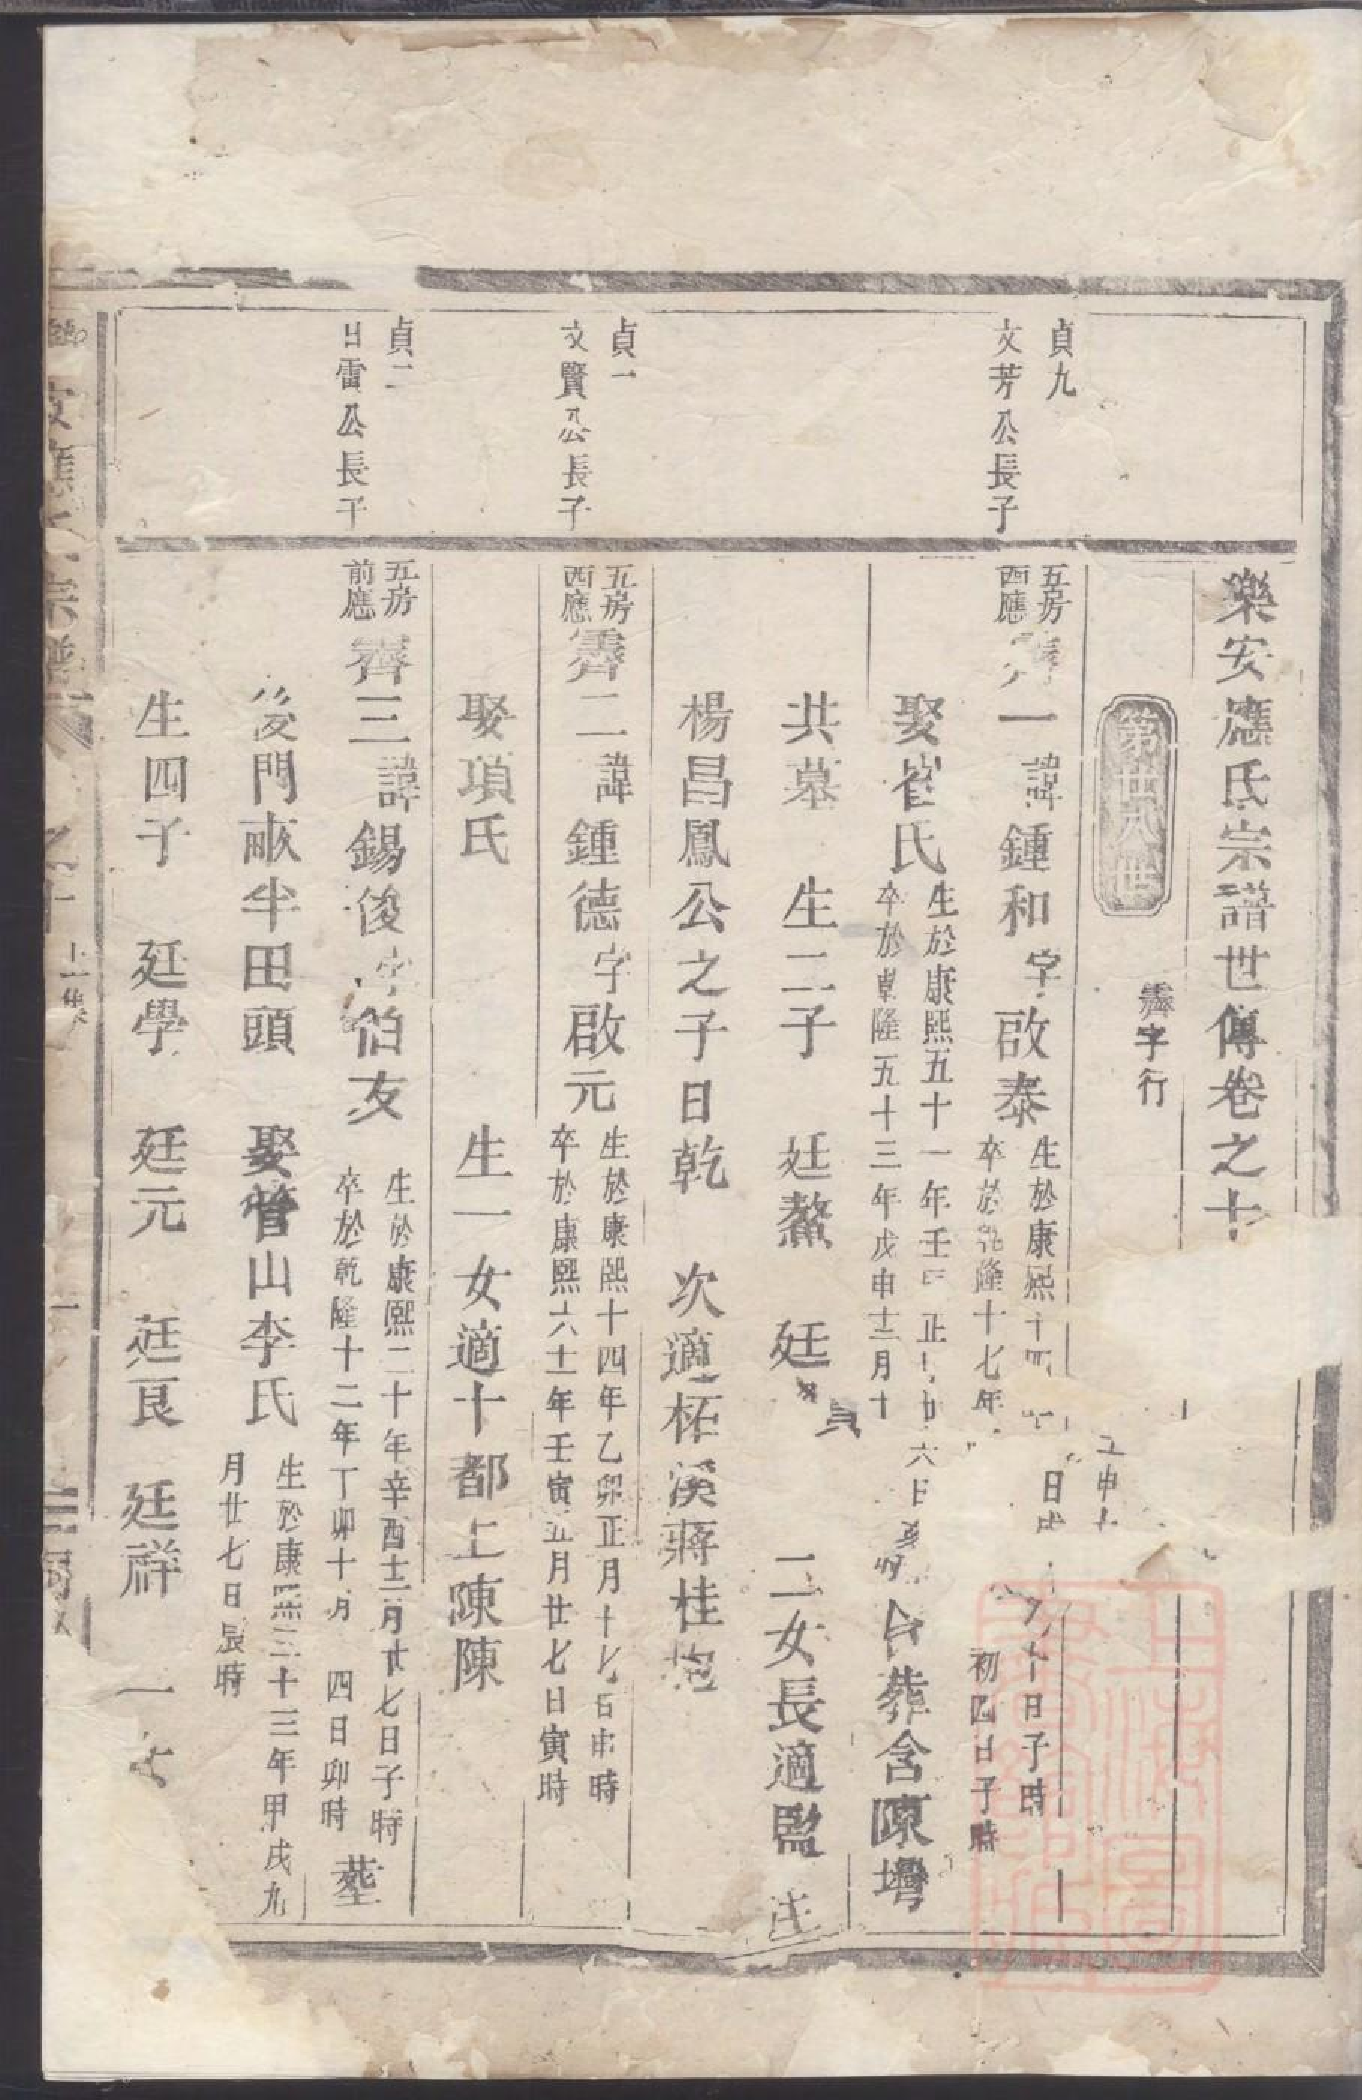 樂安應氏宗譜世傳卷之十
第廿八世
霽字行
貞九
文芳公長子
五房
西應
霽一
諱鍾和字啟泰
生於康熙十四
卒於乾隆十七年
日子時
初四日子時
娶崔氏
生於康熙五十一年壬 正 廿六日
卒於乾隆五十三年戊申十二月十
合葬含陳墈
共墓 生二子 廷鰲 廷 二女長適監
楊昌鳳公之子日乾 次適柘溪蔣桂
貞一
文賢公長子
五房
西應
霽二諱鍾德字啟元
生於康熙十四年乙卯正月十七日申時
卒於康熙六十一年壬寅五月廿七日寅時
娶項氏 生一女適十都上陳陳
貞二
日雷公長子
五房
前應
霽三諱錫俊字伯友
生於康熙二十年辛酉十二月廿七日子時
卒於乾隆十二年丁卯十月 四日卯時
葬
後門畝半田頭 娶管山李氏
生於康熙三十三年甲戌九
月廿七日辰時
生四子 廷學 廷元 廷良 廷祥 一女
宗譜
之十
上一集
一